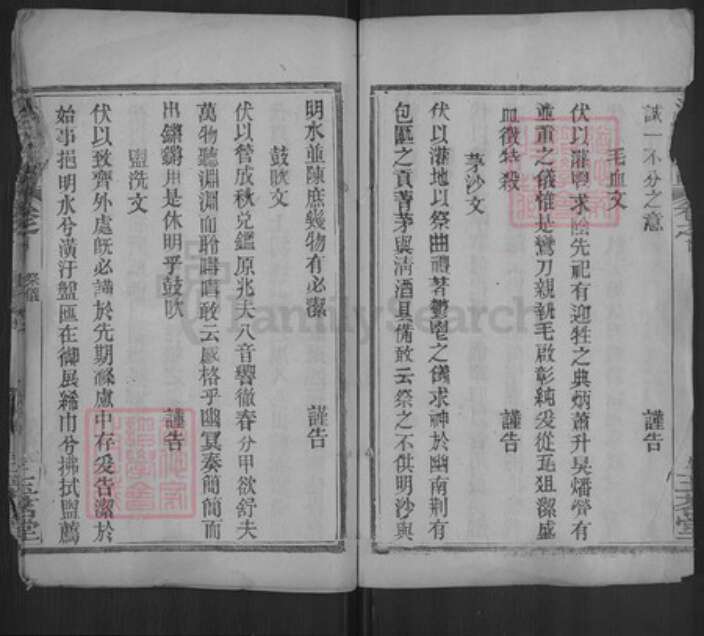 誠一不分之意 謹告
毛血文
伏以灌鬯求陰先祀有迎牲之典炳蕭升臭燔膋有
並重之儀惟是鸞刀親執毛啟彰純爰從瓦俎潔盛
血徵特殺 謹告
茅沙文
伏以灌地以祭曲禮著鬱鬯之儀求神於幽南荆有
包匭之貢菁茅與清酒具備敢云祭之不供明沙與
明水並陳庶幾物有必潔 謹告
鼓吹文
伏以管成秋兌鑑原兆夫八音響徹春分甲欲舒夫
萬物聽淵淵而聆嘒嘒敢云感格乎幽冥奏簡簡而
出鏘鏘用是休明乎鼓吹 謹告
盥洗文
伏以致齊外處既必謹於先期滌慮中存爰告潔於
始事挹明水兮潢汙盤匜在御展絺巾兮拂拭盥薦
卷之
祭儀
三荅堂
FamilySearch